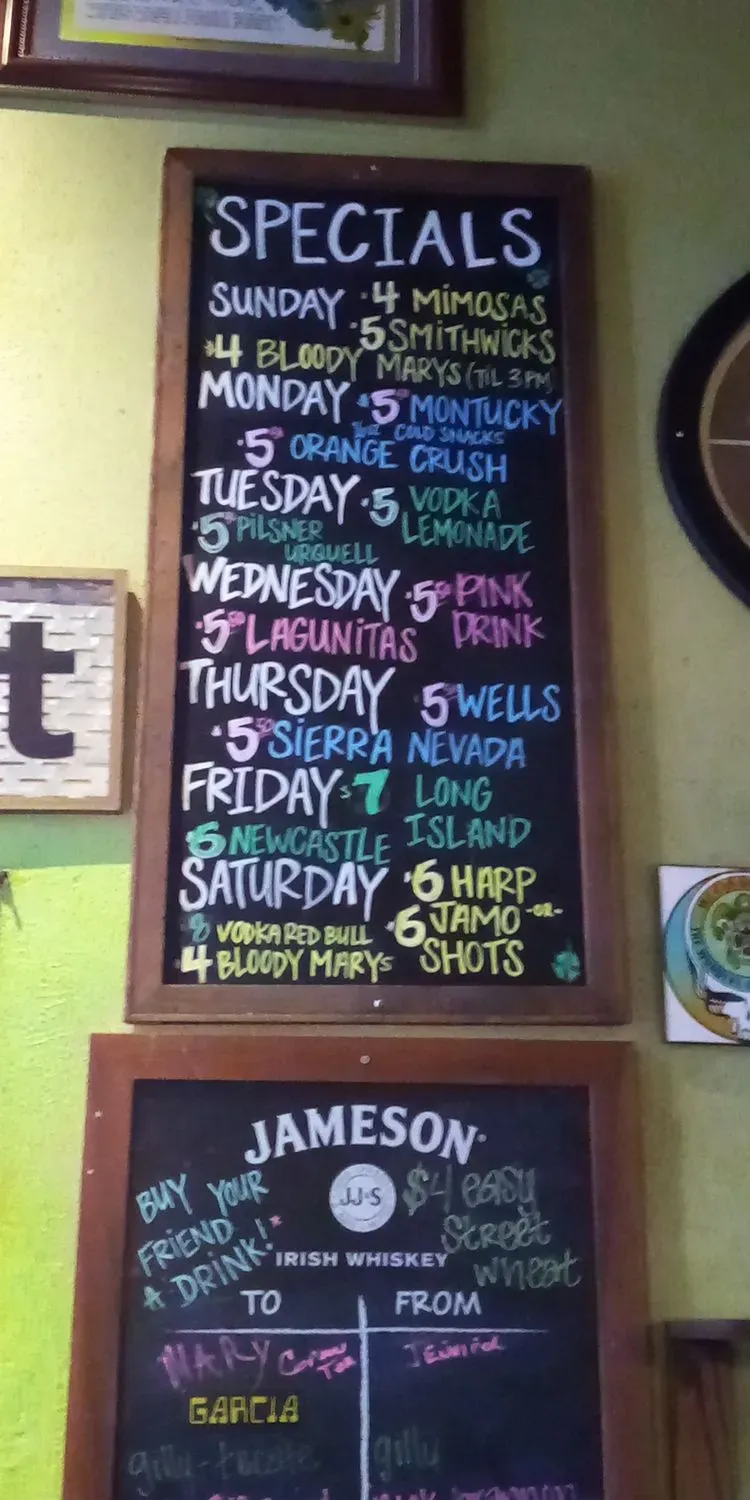 SPECIALS
SUNDAY $4 MIMOSAS
$5 SMITHWICKS
$4 BLOODY MARYS (TIL 3PM)
MONDAY $5⁵⁰ MONTUCKY
16oz COLD SNACKS
$5⁵⁰ ORANGE CRUSH
TUESDAY $5 VODKA
LEMONADE
$5⁵⁰ PILSNER
URQUELL
WEDNESDAY $5⁵⁰ PINK
DRINK
$5⁵⁰ LAGUNITAS
THURSDAY 5⁵⁰ WELLS
$5⁵⁰ SIERRA NEVADA
FRIDAY $7 LONG
ISLAND
6 NEWCASTLE
SATURDAY $6 HARP
-OR-
$6 JAMO
SHOTS
8 VODKA RED BULL
$4 BLOODY MARYS
t
JAMESON
JJ&S
IRISH WHISKEY
BUY YOUR
FRIEND
A DRINK!*
$4 easy
Street
wheat
TO FROM
MARY
GARCIA
gilly